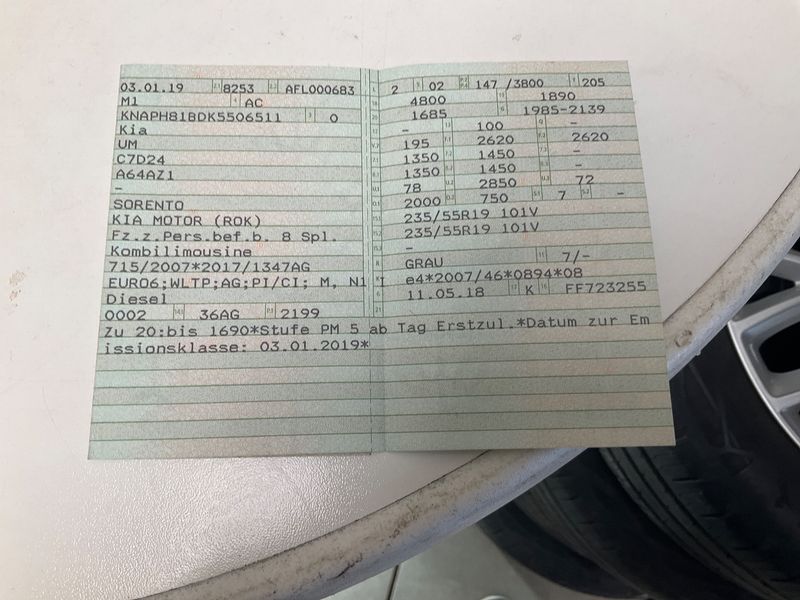 03.01.19 8253 AFL000683
M1 AC
KNAPH81BDK5506511 0
Kia
UM
C7D24
A64AZ1
-
SORENTO
KIA MOTOR (ROK)
Fz.z.Pers.bef.b. 8 Spl.
Kombilimousine
715/2007*2017/1347AG
EURO6;WLTP;AG;PI/CI; M, N1 I
Diesel
0002 36AG 2199
2 02 147 /3800 205
4800 1890
1685 1985-2139
- 100 -
195 2620 2620
1350 1450 -
1350 1450 -
78 2850 72
2000 750 7 -
235/55R19 101V
235/55R19 101V
-
GRAU 7/-
e4*2007/46*0894*08
11.05.18 K FF723255
Zu 20:bis 1690*Stufe PM 5 ab Tag Erstzul.*Datum zur Em
issionsklasse: 03.01.2019*